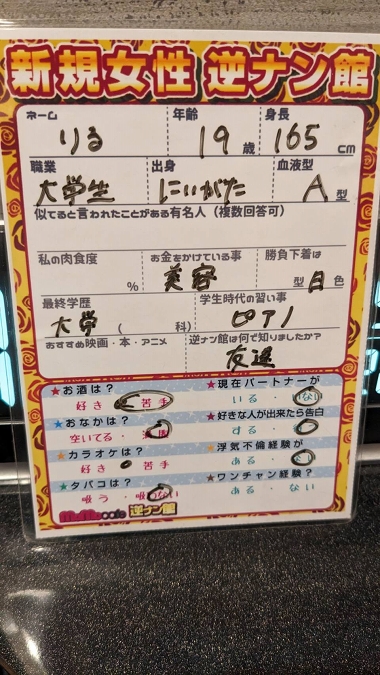 新規女性 逆ナン館
ネーム 年齢 身長
りる 19歳 165cm
職業 出身 血液型
大学生 にいがた A型
似てると言われたことがある有名人（複数回答可）
私の肉食度 お金をかけている事 勝負下着は
% 美容 型 白色
最終学歴 学生時代の習い事
大学（ 科） ピアノ
おすすめ映画・本・アニメ 逆ナン館は何で知りましたか？
友達
★お酒は？ ★現在パートナーが
好き・苦手 いる・いない
★おなかは？ ★好きな人が出来たら告白
空いてる・ する・
★カラオケは？ ★浮気不倫経験が
好き・苦手 ある・
★タバコは？ ★ワンチャン経験？
吸う・吸わない ある・ない
MoMocafe 逆ナン館